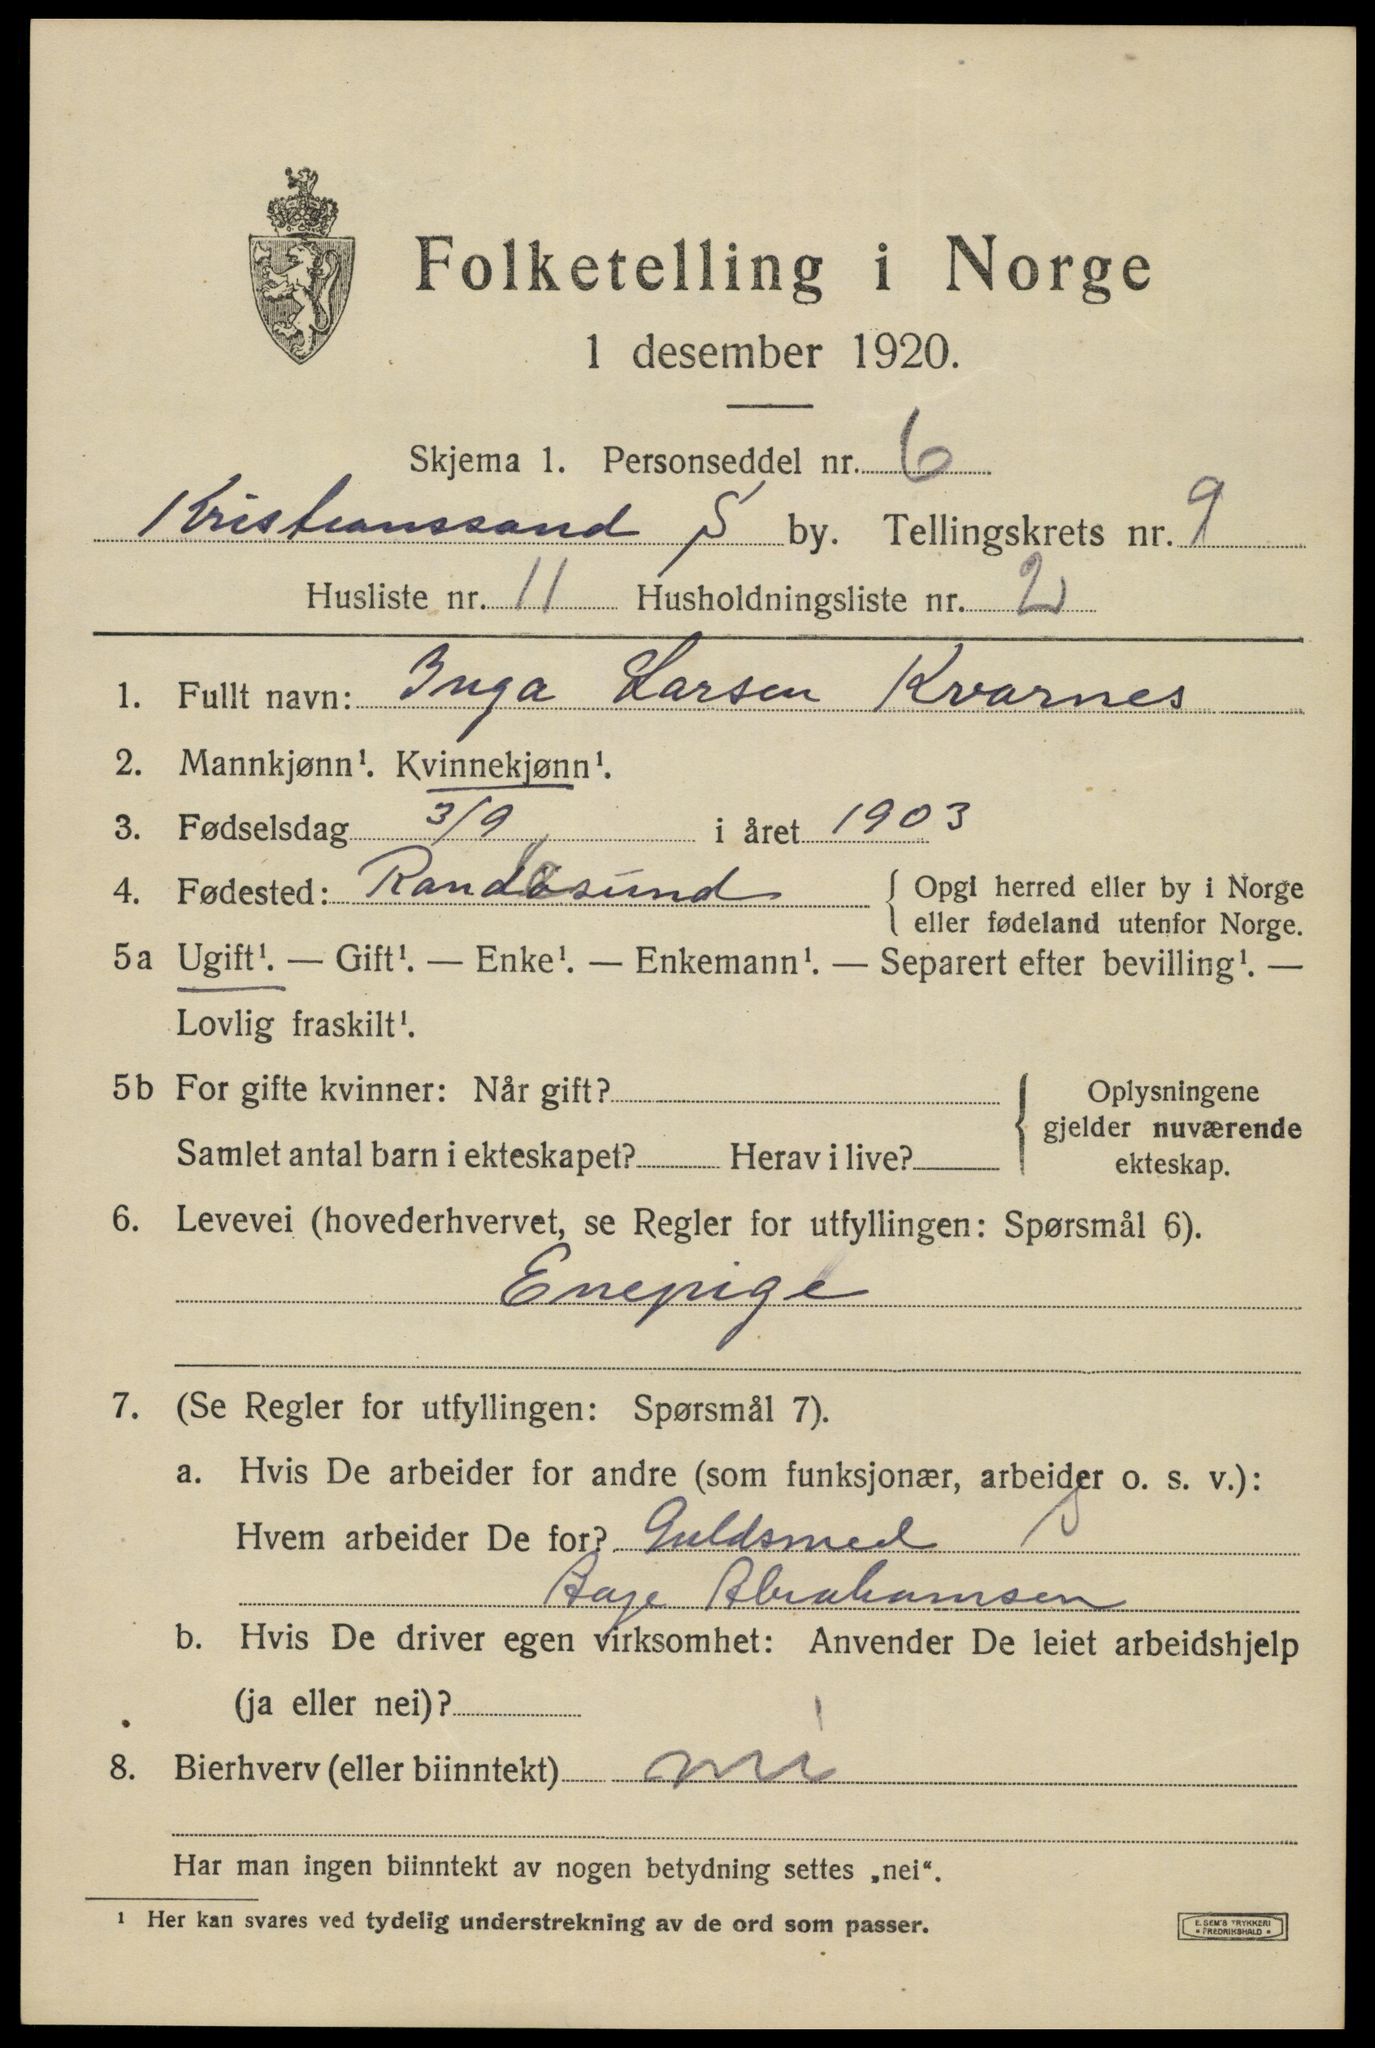 Folketelling i Norge
1 desember 1920.
Skjema 1. Personseddel nr. 6
Kristianssand S by. Tellingskrets nr. 9
Husliste nr. 11 Husholdningsliste nr. 2
1. Fullt navn: Inga Larsen Kvarnes
2. Mannkjønn¹. Kvinnekjønn¹.
3. Fødselsdag 3/9 i året 1903
4. Fødested: Randøsund { Opgi herred eller by i Norge
eller fødeland utenfor Norge.
5a Ugift¹. — Gift¹. — Enke¹. — Enkemann¹. — Separert efter bevilling¹. —
Lovlig fraskilt¹.
5b For gifte kvinner: Når gift? { Oplysningene
gjelder nuværende
Samlet antal barn i ekteskapet? Herav i live? ekteskap.
6. Levevei (hovederhvervet, se Regler for utfyllingen: Spørsmål 6).
Enepige
7. (Se Regler for utfyllingen: Spørsmål 7).
a. Hvis De arbeider for andre (som funksjonær, arbeider o. s. v.):
Hvem arbeider De for? Guldsmed
Aage Abrahamsen
b. Hvis De driver egen virksomhet: Anvender De leiet arbeidshjelp
(ja eller nei)?
8. Bierhverv (eller biinntekt) nei
Har man ingen biinntekt av nogen betydning settes „nei“.
¹ Her kan svares ved tydelig understrekning av de ord som passer.
E. SEM'S TRYKKERI
FREDRIKSHALD